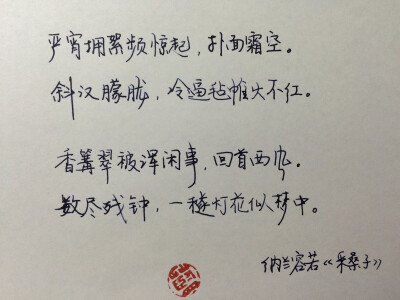 严宵拥絮频惊起,扑面霜空。
斜汉朦胧,冷逼毡帷火不红。
香篝翠被浑闲事,回首西风。
数尽残钟,一穗灯花似梦中。
纳兰容若《采桑子》